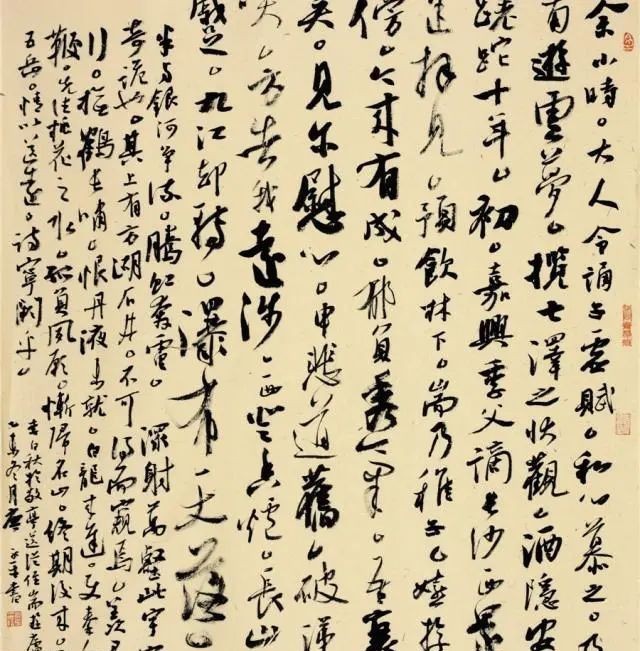 余小時。大人令誦子虛賦。私心慕之。及
南遊雲夢。攬七澤之壯觀。酒隱安
蹉跎十年。初。嘉興季父謫長沙西還
拜見。預飲林下。耑乃稚子。嬉遊
傍。今來有成。鬱負秀氣。吾衰
矣。見尔慰心。申悲道舊。破涕
笑。方告我遠涉。西登香爐。長山
蹙。九江却轉。瀑布天落。
半與銀河爭流。騰虹奔電。潨射萬壑。此宇宙
奇詭也。其上有方湖石井。不可得而窺焉。羨君
行。撫鶴長嘯。恨丹液未就。白龍來遲。使秦人
鞭。先往桃花之水。孤負夙願。慚歸名山。終期後來。
五岳。情以送遠。詩寧闕乎。
李白秋於敬亭送從侄耑遊廬
冬月 書